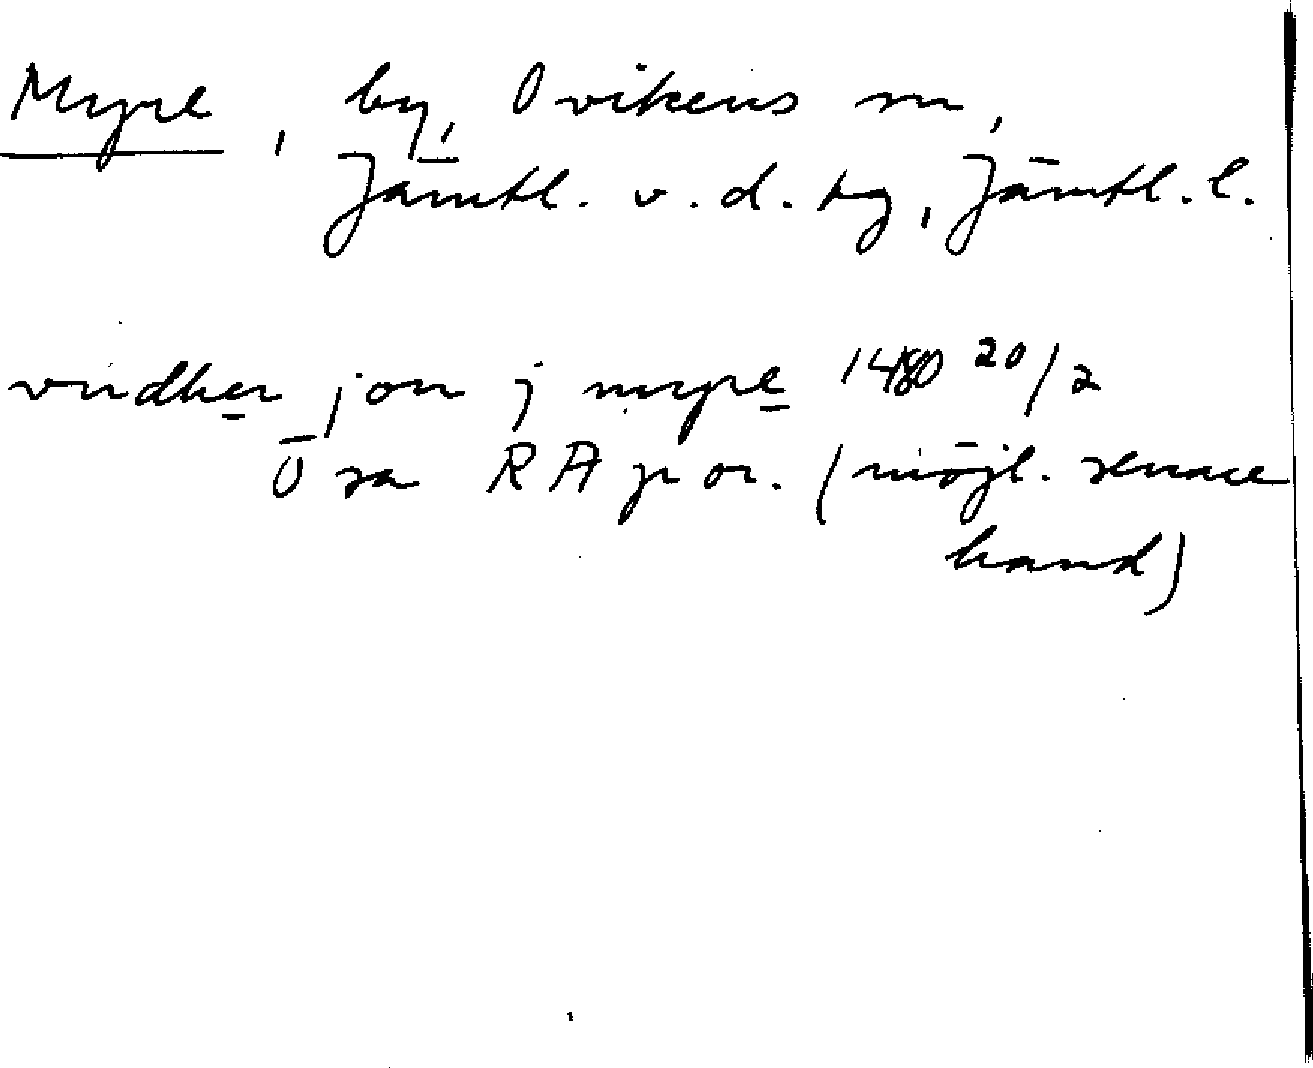 Myre, by, Ovikens sn,
Jämtl. v. d. tg, Jämtl. l.
vndher jon j myre 1480 20/2
Ösa RA p or. (möjl. senare
hand)